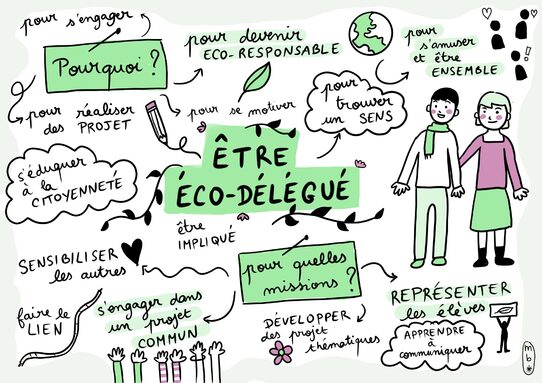 pour s'engager
Pourquoi ?
pour devenir
ÉCO-RESPONSABLE
pour
s'amuser
et être
ENSEMBLE
pour réaliser
des PROJET
pour se motiver
pour
trouver
un SENS
s'éduquer
à la
CITOYENNETÉ
ÊTRE
ÉCO-DÉLÉGUÉ
être
IMPLIQUÉ
SENSIBILISER
les autres
pour quelles
missions ?
faire le
LIEN
s'engager dans
un projet
COMMUN
DÉVELOPPER
des projet
thématiques
REPRÉSENTER
les élèves
APPRENDRE
à
communiquer
mb